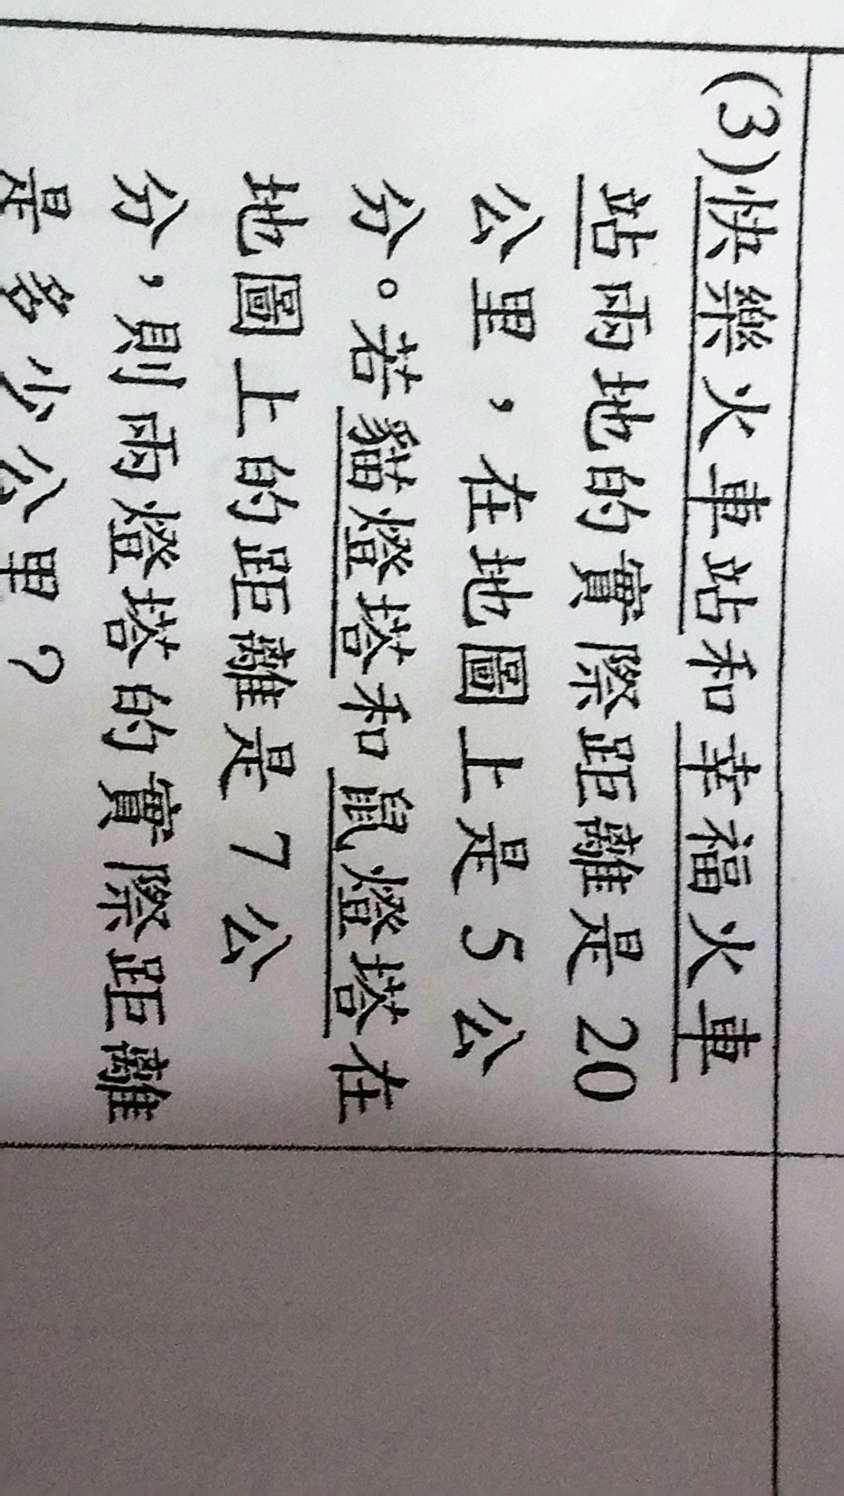 (3)快樂火車站和幸福火車
站兩地的實際距離是 20
公里，在地圖上是 5 公
分。若貓燈塔和鼠燈塔在
地圖上的距離是 7 公
分，則兩燈塔的實際距離
是多少公里？